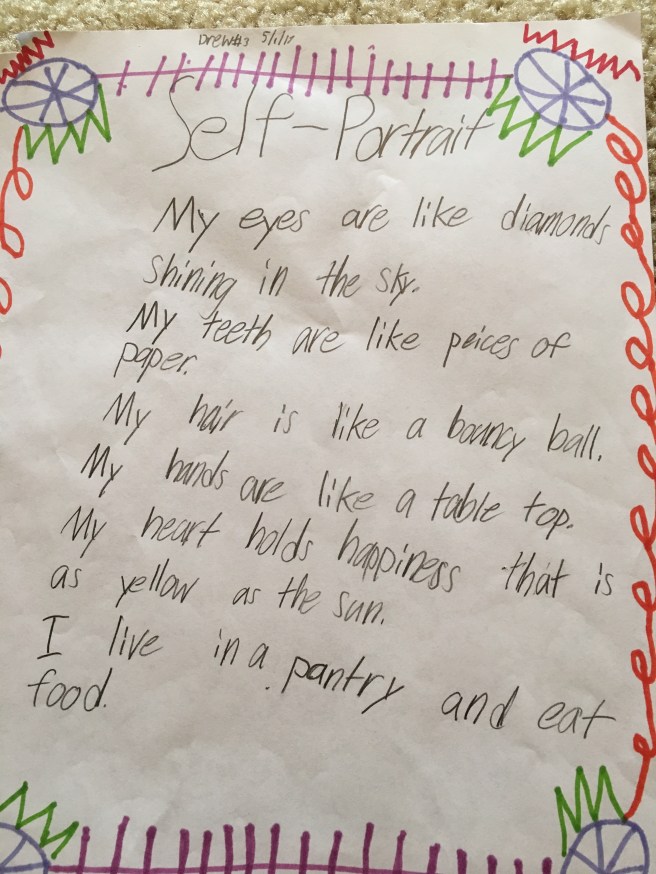 Drew#3 5/1/17
Self-Portrait
My eyes are like diamonds
shining in the sky.
My teeth are like peices of
paper.
My hair is like a bouncy ball.
My hands are like a table top.
My heart holds happiness that is
as yellow as the sun.
I live in a pantry and eat
food.